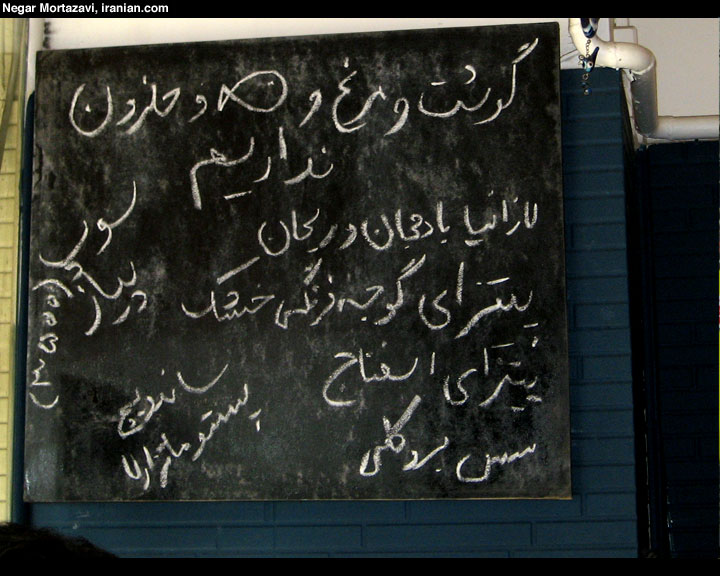 Negar Mortazavi, iranian.com
گوشت و مرغ و و حلزون
نداریم
لازانیا بادمجان و ریحان
پیتزای گوجه فرنگی خشک
پیتزای اسفناج
سس بروکلی
ساندویچ
پستو
سوپ
پیاز